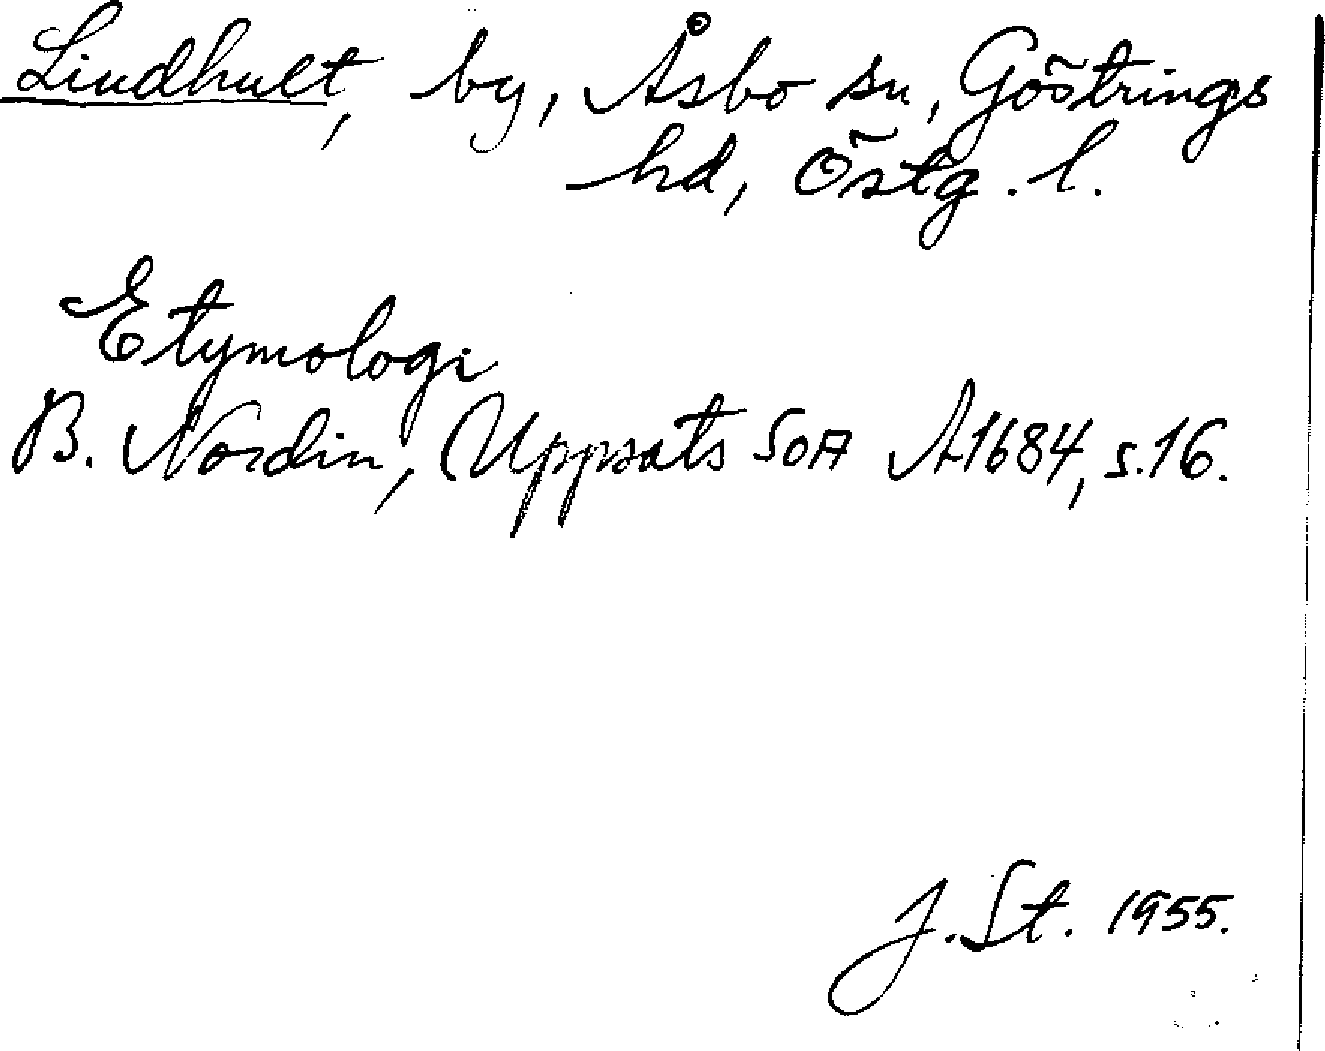 Lindhult, by, Åsbo sn, Göstrings
hd, Östg. l.
Etymologi
B. Nordin, Uppsats SOA A1684, s. 16.
J. St. 1955.